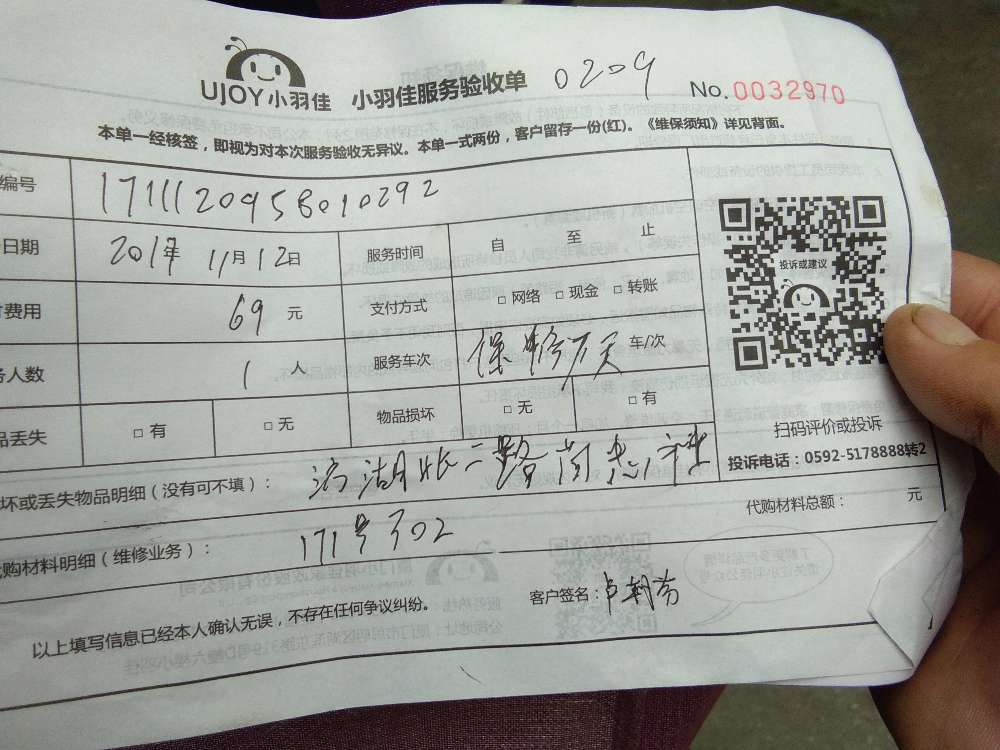 UJOY小羽佳 小羽佳服务验收单 0209 No.0032970
本单一经核签，即视为对本次服务验收无异议。本单一式两份，客户留存一份(红)。《维保须知》详见背面。
编号 1711120958010292
日期 2017年 11月12日 服务时间 自 至 止
费用 69 元 支付方式 □网络 □现金 □转账
人数 1 人 服务车次 保修7天 车/次
品丢失 □有 □无 物品损坏 □无 □有
投诉或建议
扫码评价或投诉
投诉电话：0592-5178888转2
坏或丢失物品明细（没有可不填）： 湖 二路
代购材料总额： 元
购材料明细（维修业务）： 171号302
以上填写信息已经本人确认无误，不存在任何争议纠纷。 客户签名：